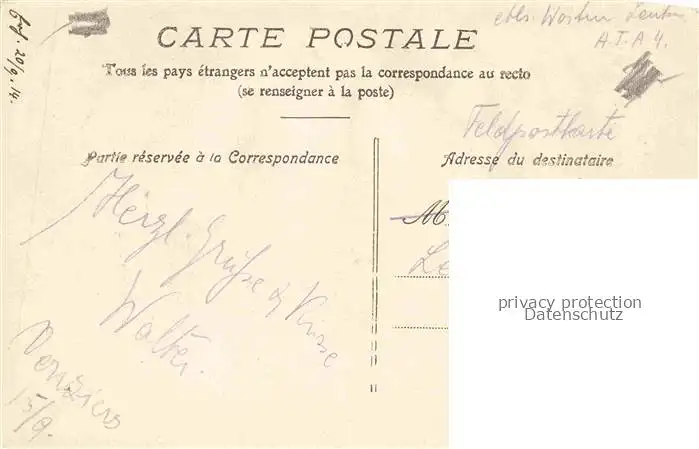 Erf. 20/9. 14.
A.I.A 4.
CARTE POSTALE
Tous les pays étrangers n'acceptent pas la correspondance au recto
(se renseigner à la poste)
Feldpostkarte
Partie réservée à la Correspondance
Adresse du destinataire
Herzl. Grüße & Küsse
Walter.
Vouziers
15/9.
M.
Le
privacy protection
Datenschutz